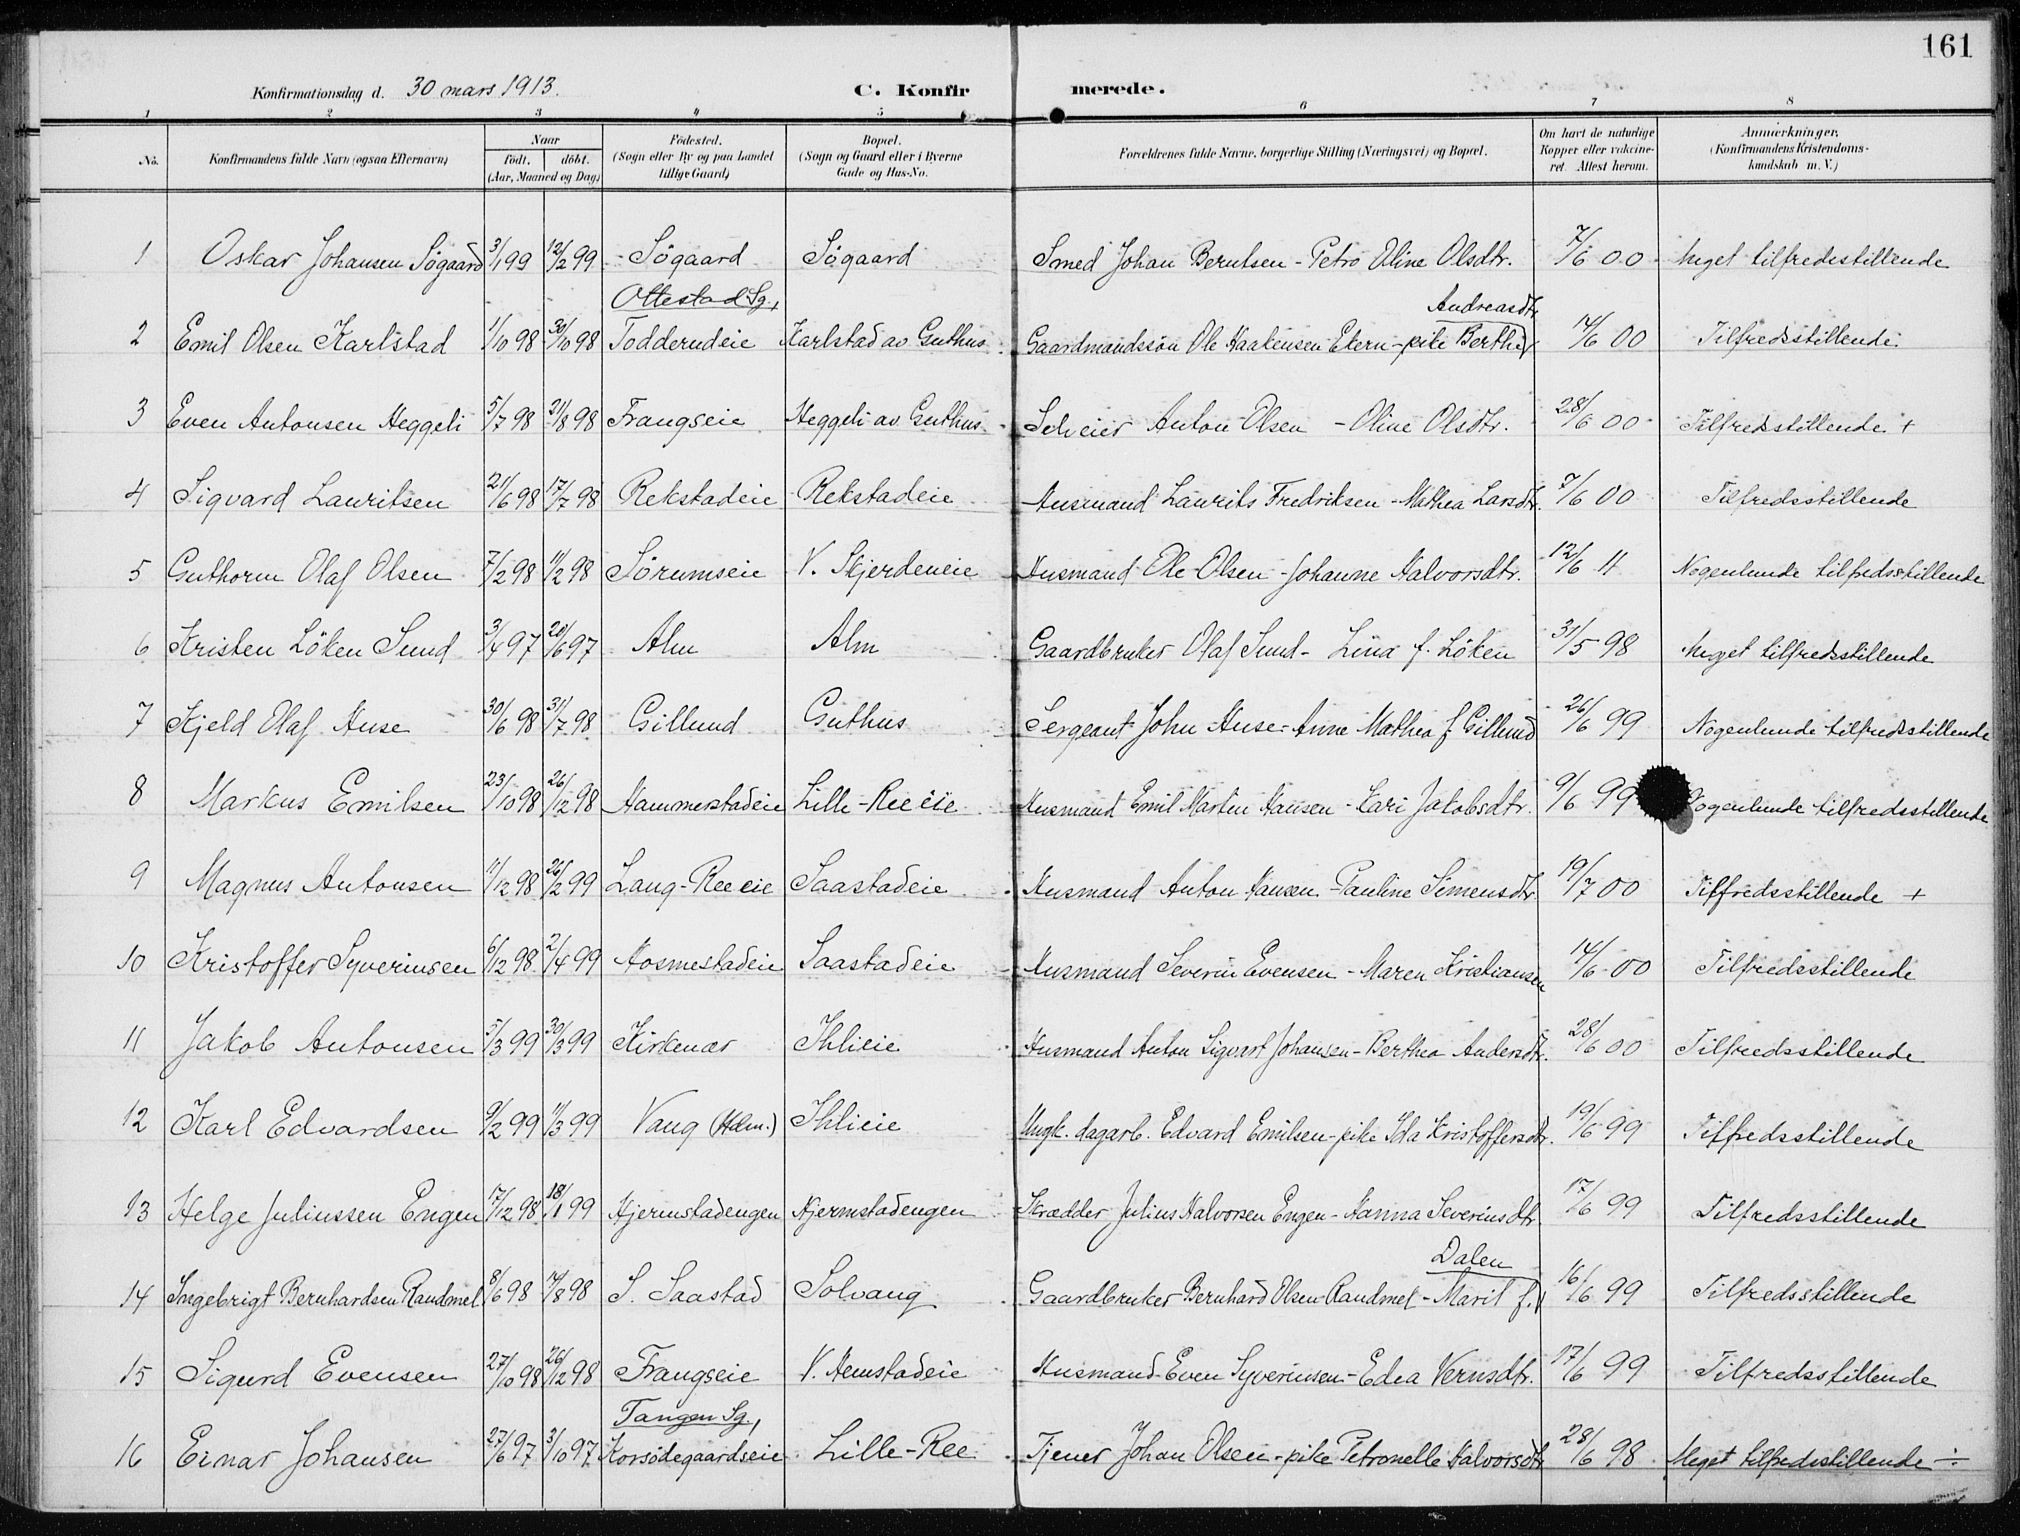 161
Konfirmationsdag d. 30 mars 1913. C. Konfirmerede.
1 2 3 4 5 6 7 8
No. Konfirmandens fulde Navn (ogsaa Efternavn) Naar født. døbt. (Aar, Maaned og Dag) Fødested. (Sogn eller By og paa Landet tillige Gaard) Bopæl. (Sogn og Gaard eller i Byerne Gade og Hus-No. Forældrenes fulde Navne, borgerlige Stilling (Næringsvei) og Bopæl. Om havt de naturlige Kopper eller vakcineret. Attest herom. Anmærkninger. (Konfirmandens Kristendomskundskab m. V.)
1 Oskar Johansen Sögaard 3/1 99 12/2 99 Sögaard Sögaard Smed Johan Berntsen - Petra Oline Olsdtr. 7/6 00 Meget tilfredsstillende
2 Emil Olsen Karlstad 1/10 98 30/10 98 Ottestad Sg., Todderudeie Karlstad av Guthus Gaardmandssön Ole Haakensen Ekern - pike Berthe Andreasdtr. 14/6 00 Tilfredsstillende
3 Even Antonsen Heggeli 5/7 98 21/8 98 Frangseie Heggeli av Guthus Selveier Anton Olsen - Oline Olsdtr. 28/6 00 Tilfredsstillende +
4 Sigvard Lauritsen 21/6 98 17/7 98 Rekstadeie Rekstadeie Husmand Laurits Fredriksen - Mathea Larsdtr. 7/6 00 Tilfredsstillende
5 Guthorm Olaf Olsen 7/2 98 11/2 98 Sörumseie V. Skjerdeneie Husmand Ole Olsen - Johanne Halvorsdtr. 12/6 11 Nogenlunde tilfredsstillende
6 Kristen Löken Sund 3/4 97 20/6 97 Alm Alm Gaardbruker Olaf Sund - Lina f. Löken 31/5 98 Meget tilfredsstillende
7 Kjeld Olaf Huse 30/6 98 31/7 98 Gillund Guthus Sergeant John Huse - Anne Mathea f. Gillund 26/6 99 Nogenlunde tilfredsstillende
8 Markus Emilsen 23/10 98 26/12 98 Hammerstadeie Lille-Ree eie Husmand Emil Martin Hansen - Kari Jakobsdtr. 9/6 99 Nogenlunde tilfredsstillende
9 Magnus Antonsen 11/12 98 26/2 99 Lang-Ree eie Saastadeie Husmand Anton Hansen - Pauline Simensdtr. 19/7 00 Tilfredsstillende +
10 Kristoffer Syverinsen 6/12 98 2/4 99 Hosmestadeie Saastadeie Husmand Severin Evensen - Maren Kristiansen 14/6 00 Tilfredsstillende
11 Jakob Antonsen 5/3 99 30/3 99 Kirkenær Ihlieie Husmand Anton Sigvart Johansen - Berthea Andersdtr. 28/6 00 Tilfredsstillende
12 Karl Edvardsen 9/2 99 11/3 99 Vang (Hdm.) Ihlieie Ungk. dagarb. Edvard Emilsen - pike Ida Kristoffersdtr. 19/6 99 Tilfredsstillende
13 Helge Juliussen Engen 17/12 98 18/1 99 Hjermstadengen Hjermstadengen Skrædder Julius Halvorsen Engen - Hanna Severinsdtr. 17/6 99 Tilfredsstillende
14 Ingebrigt Bernhardsen Raudmel 8/6 98 7/8 98 S. Saastad Solvang Gaardbruker Bernhard Olsen Raudmel - Marit f. Dalen 16/6 99 Tilfredsstillende
15 Sigurd Evensen 27/10 98 26/12 98 Frangseie V. Hemstadeie Husmand Even Syverinsen - Edea Vernsdtr. 17/6 99 Tilfredsstillende
16 Einar Johansen 27/6 97 3/10 97 Tangen Sg., Korsödegaardseie Lille-Ree Tjener Johan Olsen - pike Petronelle Halvorsdtr. 28/6 98 Meget tilfredsstillende ÷